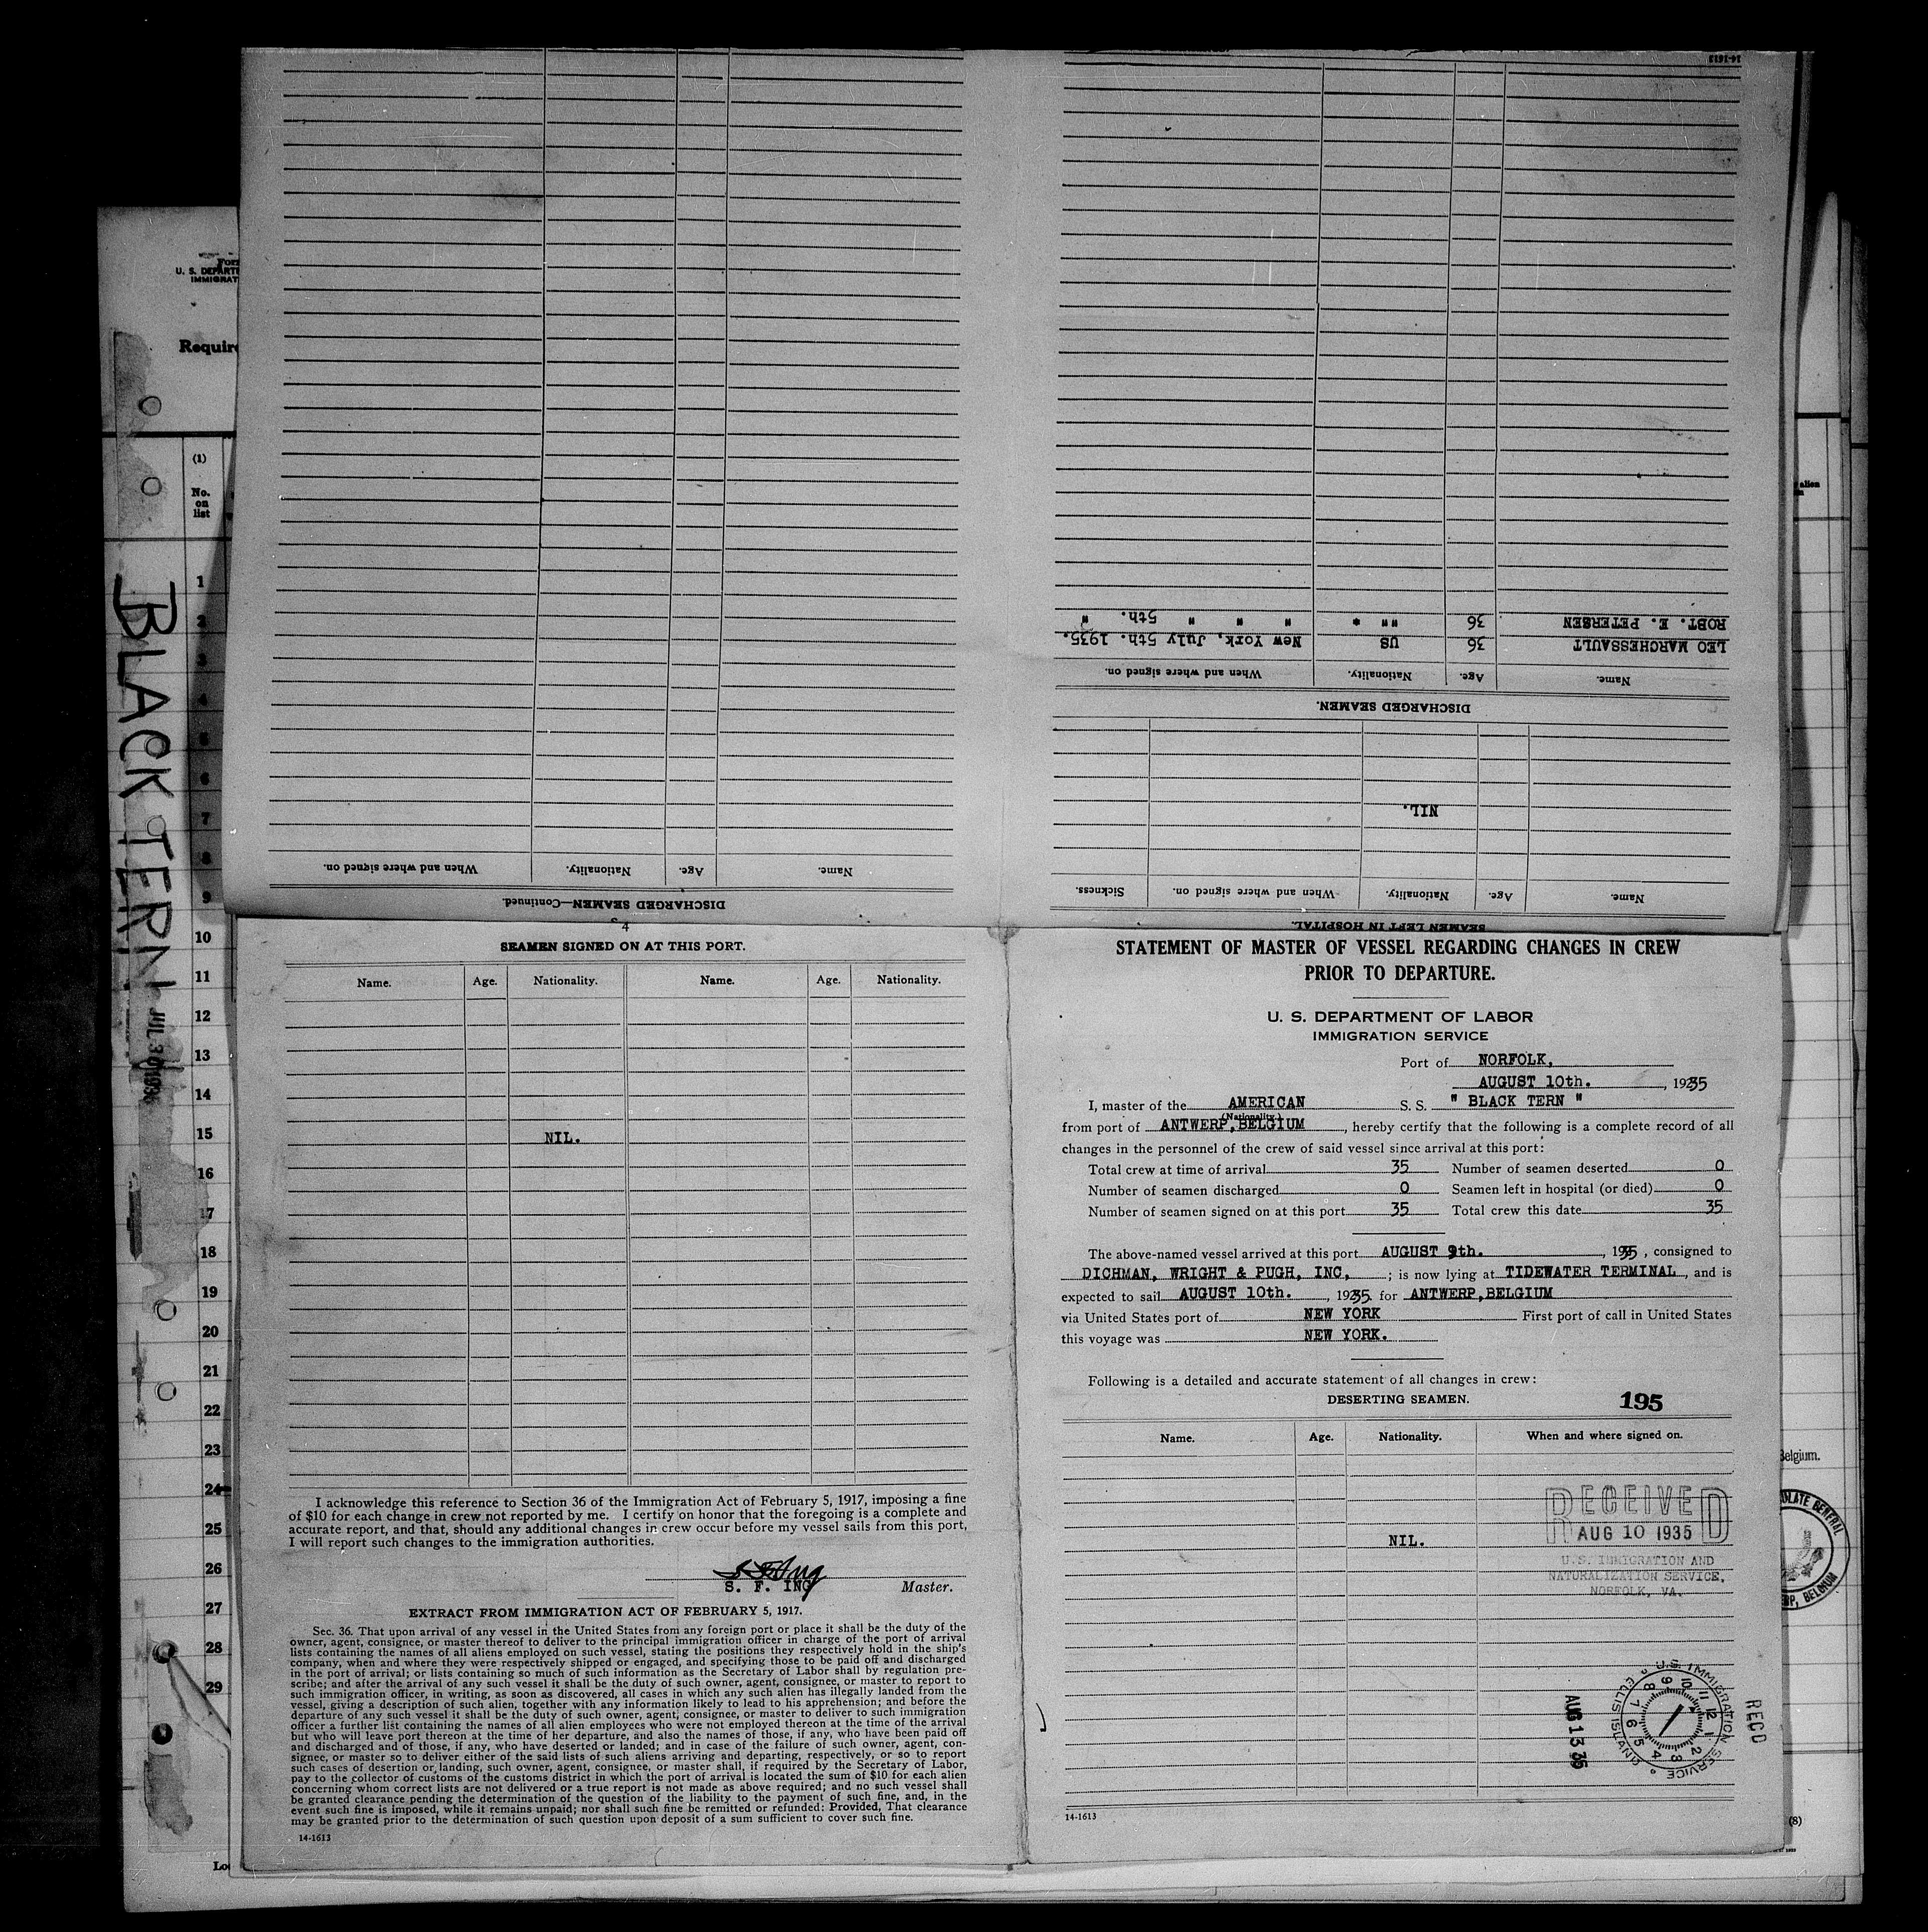 14-1613
ROBT. E. PETERSEN 36 " " " " " " " 5th. "
LEO MARCHESSAULT 36 US New York, July 5th. 1935.
Name. Age. Nationality. When and where signed on.
DISCHARGED SEAMEN.
NIL.
Name. Age. Nationality. When and where signed on.
DISCHARGED SEAMEN—Continued.
Name. Age. Nationality. When and where signed on. Sickness.
SEAMEN LEFT IN HOSPITAL.
U. S. DEPART
IMMIGRAT
Require
(1)
No.
on
list
1
2
3
4
5
6
7
8
9
10
11
12
13
14
15
16
17
18
19
20
21
22
23
24
25
26
27
28
29
BLACK TERN
JUL 30 1935
4
SEAMEN SIGNED ON AT THIS PORT.
Name. Age. Nationality. Name. Age. Nationality.
NIL.
I acknowledge this reference to Section 36 of the Immigration Act of February 5, 1917, imposing a fine
of $10 for each change in crew not reported by me. I certify on honor that the foregoing is a complete and
accurate report, and that, should any additional changes in crew occur before my vessel sails from this port,
I will report such changes to the immigration authorities.
S F Ing
S. F. ING Master.
EXTRACT FROM IMMIGRATION ACT OF FEBRUARY 5, 1917.
Sec. 36. That upon arrival of any vessel in the United States from any foreign port or place it shall be the duty of the
owner, agent, consignee, or master thereof to deliver to the principal immigration officer in charge of the port of arrival
lists containing the names of all aliens employed on such vessel, stating the positions they respectively hold in the ship's
company, when and where they were respectively shipped or engaged, and specifying those to be paid off and discharged
in the port of arrival; or lists containing so much of such information as the Secretary of Labor shall by regulation pre-
scribe; and after the arrival of any such vessel it shall be the duty of such owner, agent, consignee, or master to report to
such immigration officer, in writing, as soon as discovered, all cases in which any such alien has illegally landed from the
vessel, giving a description of such alien, together with any information likely to lead to his apprehension; and before the
departure of any such vessel it shall be the duty of such owner, agent, consignee, or master to deliver to such immigration
officer a further list containing the names of all alien employees who were not employed thereon at the time of the arrival
but who will leave port thereon at the time of her departure, and also the names of those, if any, who have been paid off
and discharged and of those, if any, who have deserted or landed; and in case of the failure of such owner, agent, con-
signee, or master so to deliver either of the said lists of such aliens arriving and departing, respectively, or so to report
such cases of desertion or landing, such owner, agent, consignee, or master shall, if required by the Secretary of Labor,
pay to the collector of customs of the customs district in which the port of arrival is located the sum of $10 for each alien
concerning whom correct lists are not delivered or a true report is not made as above required; and no such vessel shall
be granted clearance pending the determination of the question of the liability to the payment of such fine, and, in the
event such fine is imposed, while it remains unpaid; nor shall such fine be remitted or refunded: Provided, That clearance
may be granted prior to the determination of such question upon deposit of a sum sufficient to cover such fine.
14-1613
STATEMENT OF MASTER OF VESSEL REGARDING CHANGES IN CREW
PRIOR TO DEPARTURE.
U. S. DEPARTMENT OF LABOR
IMMIGRATION SERVICE
Port of NORFOLK,
AUGUST 10th. , 1935
I, master of the AMERICAN S. S. " BLACK TERN "
(Nationality.)
from port of ANTWERP, BELGIUM , hereby certify that the following is a complete record of all
changes in the personnel of the crew of said vessel since arrival at this port:
Total crew at time of arrival 35 Number of seamen deserted 0
Number of seamen discharged 0 Seamen left in hospital (or died) 0
Number of seamen signed on at this port 35 Total crew this date 35
The above-named vessel arrived at this port AUGUST 9th. , 1935 , consigned to
DICHMAN, WRIGHT & PUGH, INC, ; is now lying at TIDEWATER TERMINAL , and is
expected to sail AUGUST 10th. , 1935. for ANTWERP, BELGIUM
via United States port of NEW YORK First port of call in United States
this voyage was NEW YORK.
Following is a detailed and accurate statement of all changes in crew:
DESERTING SEAMEN. 195
Name. Age. Nationality. When and where signed on.
NIL.
RECEIVED
AUG 10 1935
U.S. IMMIGRATION AND
NATURALIZATION SERVICE,
NORFOLK, VA.
U.S. IMMIGRATION SERVICE
ELLIS ISLAND
AUG 13 35
RECD
14-1613
Belgium.
(8)